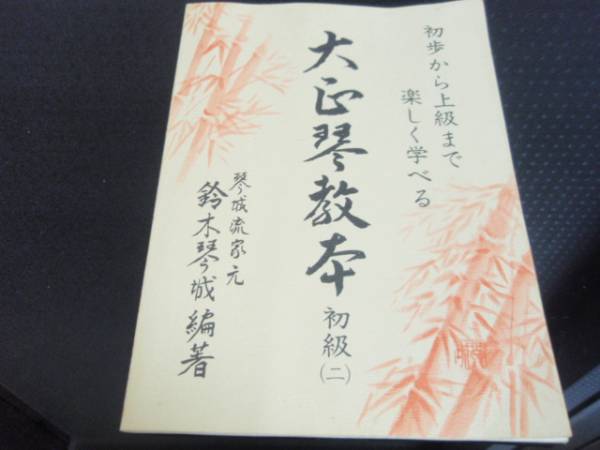 初歩から上級まで
楽しく学べる
大正琴教本
初級(二)
琴城流家元
鈴木琴城編著